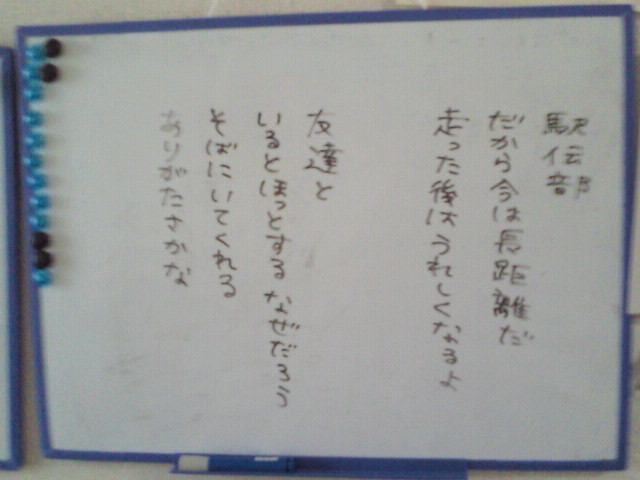 駅伝部
だから今は長距離だ
走った後はうれしくなるよ
友達と
いるとほっとする なぜだろう
そばにいてくれる
ありがたさかな